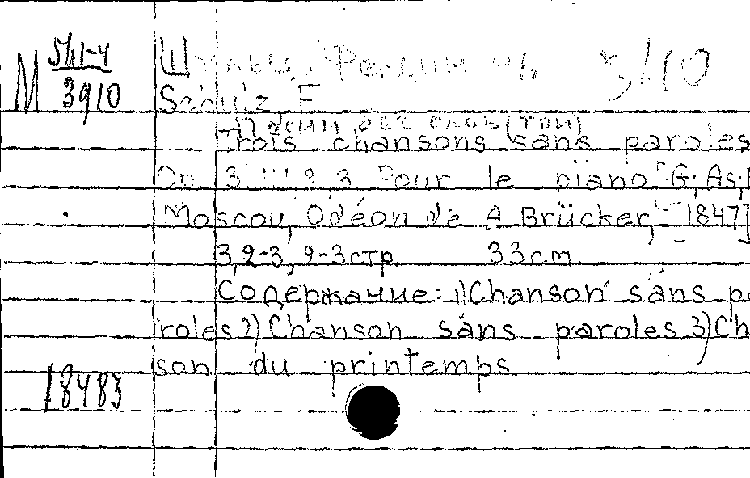 М 541-4
3910
Schulz, F
Песни без слов (три)
Trois chansons sans paroles
Op 3 2,3 Pour le piano G; As;
Moscou, Odéon de A Brücker, 1847]
3,2-3, 2-3 стр. 33 см.
Содержание: 1) Chanson sans pa
roles 2) Chanson sans paroles 3) Ch
son du printemps
18483